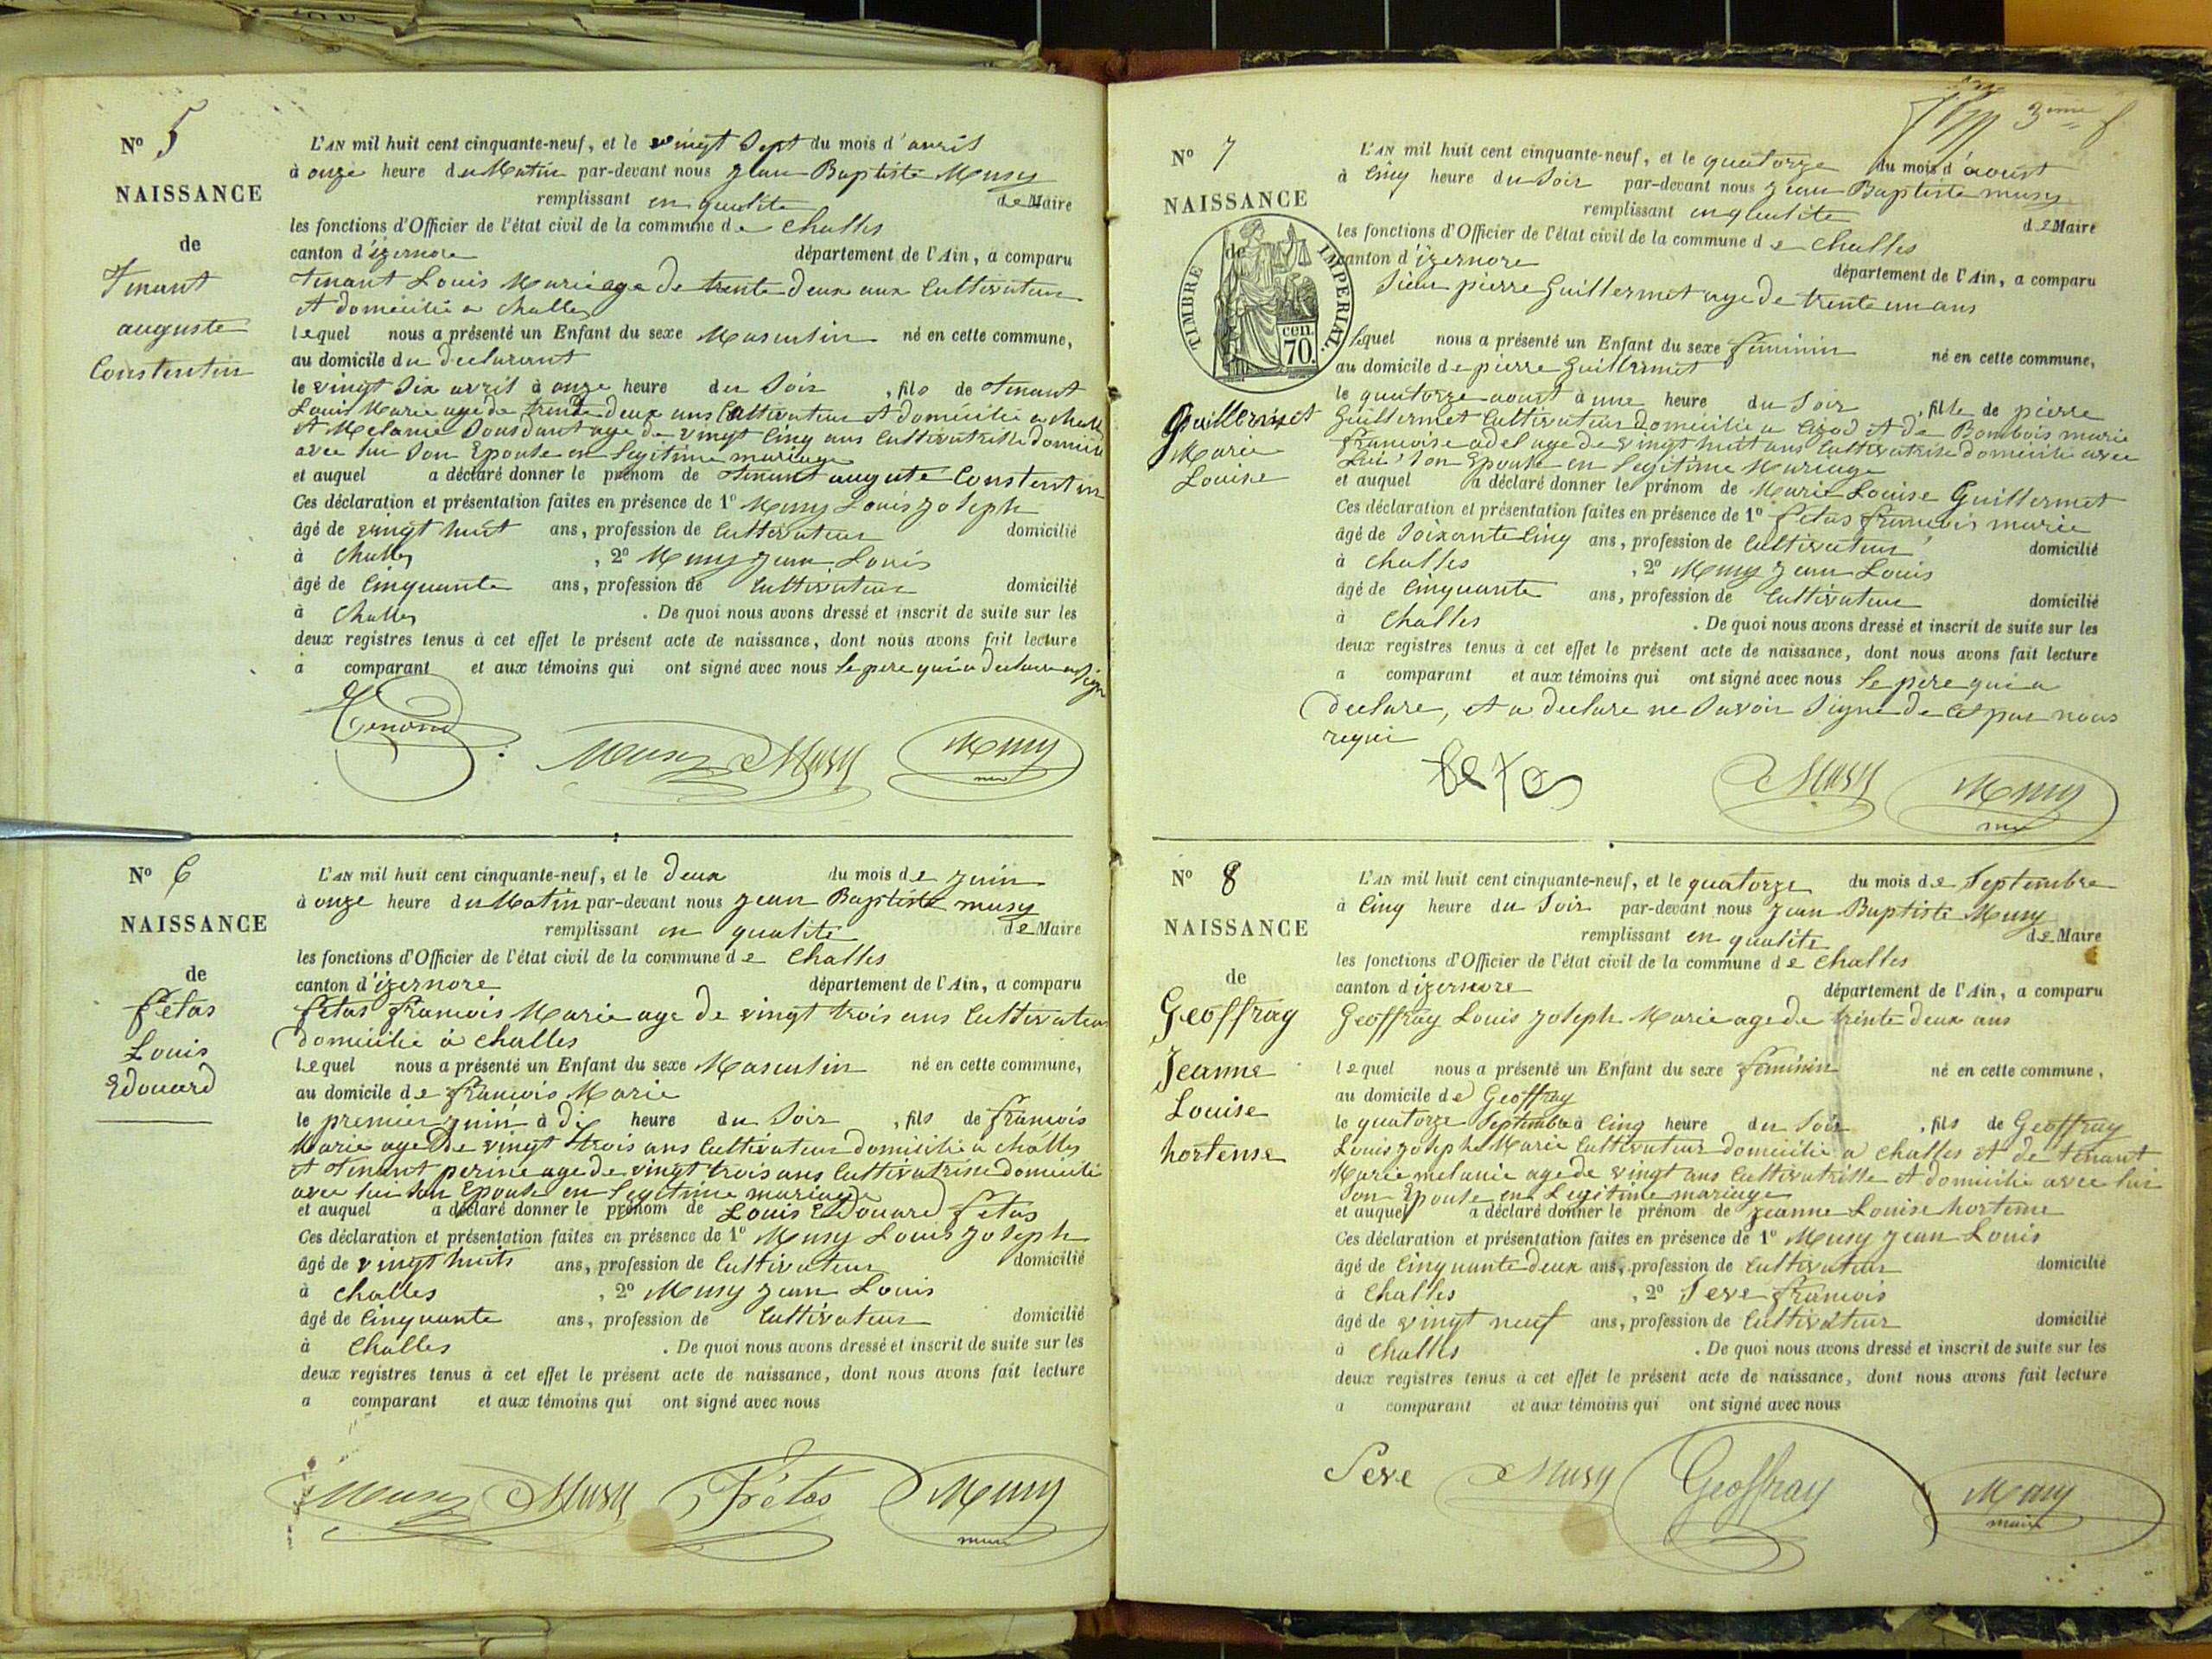 N° 5
NAISSANCE
de
Tenant
auguste
Constentin
L'AN mil huit cent cinquante-neuf, et le vingt Sept du mois d'avril
à onze heure du Matin par-devant nous jean Baptiste Musy
remplissant en qualite de Maire
les fonctions d'Officier de l'état civil de la commune de Challes
canton d'izernore département de l'Ain, a comparu
Tenant Louis Marie age de trente deux ans Cultivateur
et domicilié a Challes
lequel nous a présenté un Enfant du sexe Masculin né en cette commune,
au domicile du declarant
le vingt Six avril à onze heure du Soir, fils de Tenant
Louis Marie age de trente deux ans Cultivateur et domicilié a challe
et Melanie age de vingt Cinq ans Cultivatrisse domicili
avec lui Son Epouse en legitime mariage
et auquel a déclaré donner le prénom de Tenant auguste Constentin
Ces déclaration et présentation faites en présence de 1° Musy Louis joseph
âgé de vingt huit ans, profession de Cultivateur domicilié
à Challes, 2° Musy jean Louis
âgé de Cinquante ans, profession de Cultivateur domicilié
à Challes. De quoi nous avons dressé et inscrit de suite sur les
deux registres tenus à cet effet le présent acte de naissance, dont nous avons fait lecture
a comparant et aux témoins qui ont signé avec nous le pere qui a declare a Signe
Musy Musy Musy
N° 6
NAISSANCE
de
fétas
Louis
Edouard
L'AN mil huit cent cinquante-neuf, et le deux du mois de juin
à onze heure du Matin par-devant nous jean Baptiste musy
remplissant en qualite de Maire
les fonctions d'Officier de l'état civil de la commune de Challes
canton d'izernore département de l'Ain, a comparu
fetas francois Marie age de vingt trois ans Cultivateur
domicilie à challes
lequel nous a présenté un Enfant du sexe Masculin né en cette commune,
au domicile de francois Marie
le premier juin à di heure du Soir, fils de francois
Marie age de vingt trois ans Cultivateur domicilié a challes
et Tenant perine age de vingt trois ans Cultivatrisse domicilie
avec lui Son Epouse en legitime mariage
et auquel a déclaré donner le prénom de Louis Edouard fetas
Ces déclaration et présentation faites en présence de 1° Musy Louis joseph
âgé de vingt huits ans, profession de Cultivateur domicilié
à challes, 2° Musy jean Louis
âgé de Cinquante ans, profession de Cultivateur domicilié
à Challes. De quoi nous avons dressé et inscrit de suite sur les
deux registres tenus à cet effet le présent acte de naissance, dont nous avons fait lecture
a comparant et aux témoins qui ont signé avec nous
Musy Musy Fétas Musy
3eme f
N° 7
NAISSANCE
de
TIMBRE IMPERIAL.
cen. 70.
Guillermet
Marie
Louise
L'AN mil huit cent cinquante-neuf, et le quatorze du mois d'aoust
à Cinq heure du Soir par-devant nous jean Baptiste musy
remplissant en qualité de Maire
les fonctions d'Officier de l'état civil de la commune de Challes
canton d'izernore département de l'Ain, a comparu
Sieur pierre Guillermet age de trente un ans
lequel nous a présenté un Enfant du sexe feminin né en cette commune,
au domicile de pierre Guillermet
le quatorze aoust à une heure du Soir, fille de pierre
Guillermet Cultivateur domicilié a et de Bombois marie
francoise adel age de vingt huit ans Cultivatrise domicilié avec
lui Son Epouse en legitime Mariage
et auquel a déclaré donner le prénom de Marie Louise Guillermet
Ces déclaration et présentation faites en présence de 1° fetas francois marie
âgé de Soixante Cinq ans, profession de Cultivateur domicilié
à challes, 2° Musy jean Louis
âgé de Cinquante ans, profession de Cultivateur domicilié
à Challes. De quoi nous avons dressé et inscrit de suite sur les
deux registres tenus à cet effet le présent acte de naissance, dont nous avons fait lecture
a comparant et aux témoins qui ont signé avec nous le père qui a
declare, et a declare ne Savoir Signé de ce par nous
requi
Musy Musy
N° 8
NAISSANCE
de
Geoffray
Jeanne
Louise
hortense
L'AN mil huit cent cinquante-neuf, et le quatorze du mois de Septembre
à Cinq heure du Soir par-devant nous jean Baptiste Musy
remplissant en qualite de Maire
les fonctions d'Officier de l'état civil de la commune de Challes
canton d'izernore département de l'Ain, a comparu
Geoffray Louis joseph Marie age de trente deux ans
lequel nous a présenté un Enfant du sexe feminin né en cette commune,
au domicile de Geoffray
le quatorze Septembre à Cinq heure du Soir, fils de Geoffray
Louis joseph Marie Cultivateur domicilié a challes et de tenant
Marie melanie age de vingt ans Cultivatrisse et domicilié avec lui
Son Epouse en Legitime mariage
et auquel a déclaré donner le prénom de jeanne Louise hortense
Ces déclaration et présentation faites en présence de 1° Musy jean Louis
âgé de Cinquante deux ans, profession de Cultivateur domicilié
à Challes, 2° Seve francois
âgé de vingt neuf ans, profession de Cultivateur domicilié
à Challes. De quoi nous avons dressé et inscrit de suite sur les
deux registres tenus à cet effet le présent acte de naissance, dont nous avons fait lecture
a comparant et aux témoins qui ont signé avec nous
Seve Musy Geoffray Musy
maire